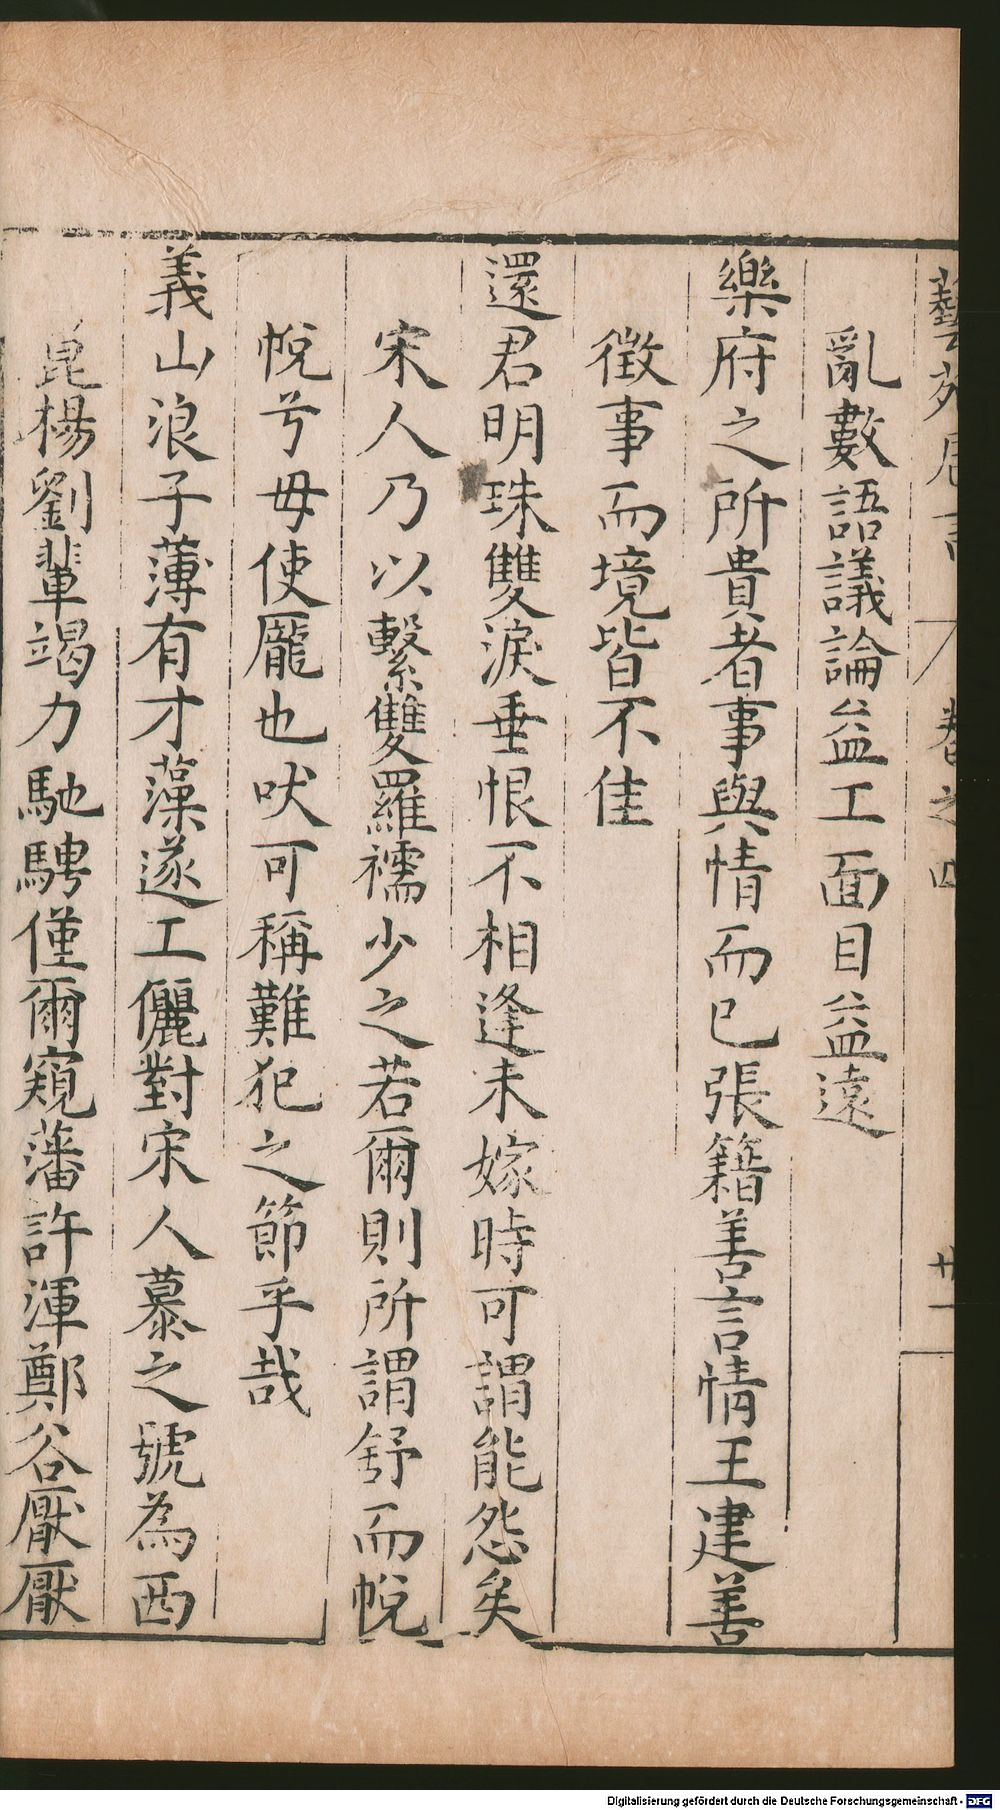 藝苑卮言 卷之四 廿一
亂數語議論益工面目益遠
樂府之所貴者事與情而已張籍善言情王建善
徵事而境皆不佳
還君明珠雙淚垂恨不相逢未嫁時可謂能怨矣
宋人乃以繫雙羅襦少之若爾則所謂舒而帨
帨兮毋使厖也吠可稱難犯之節乎哉
義山浪子薄有才藻遂工儷對宋人慕之號為西
崑楊劉輩竭力馳騁僅爾窺藩許渾鄭谷厭厭
Digitalisierung gefördert durch die Deutsche Forschungsgemeinschaft - DFG